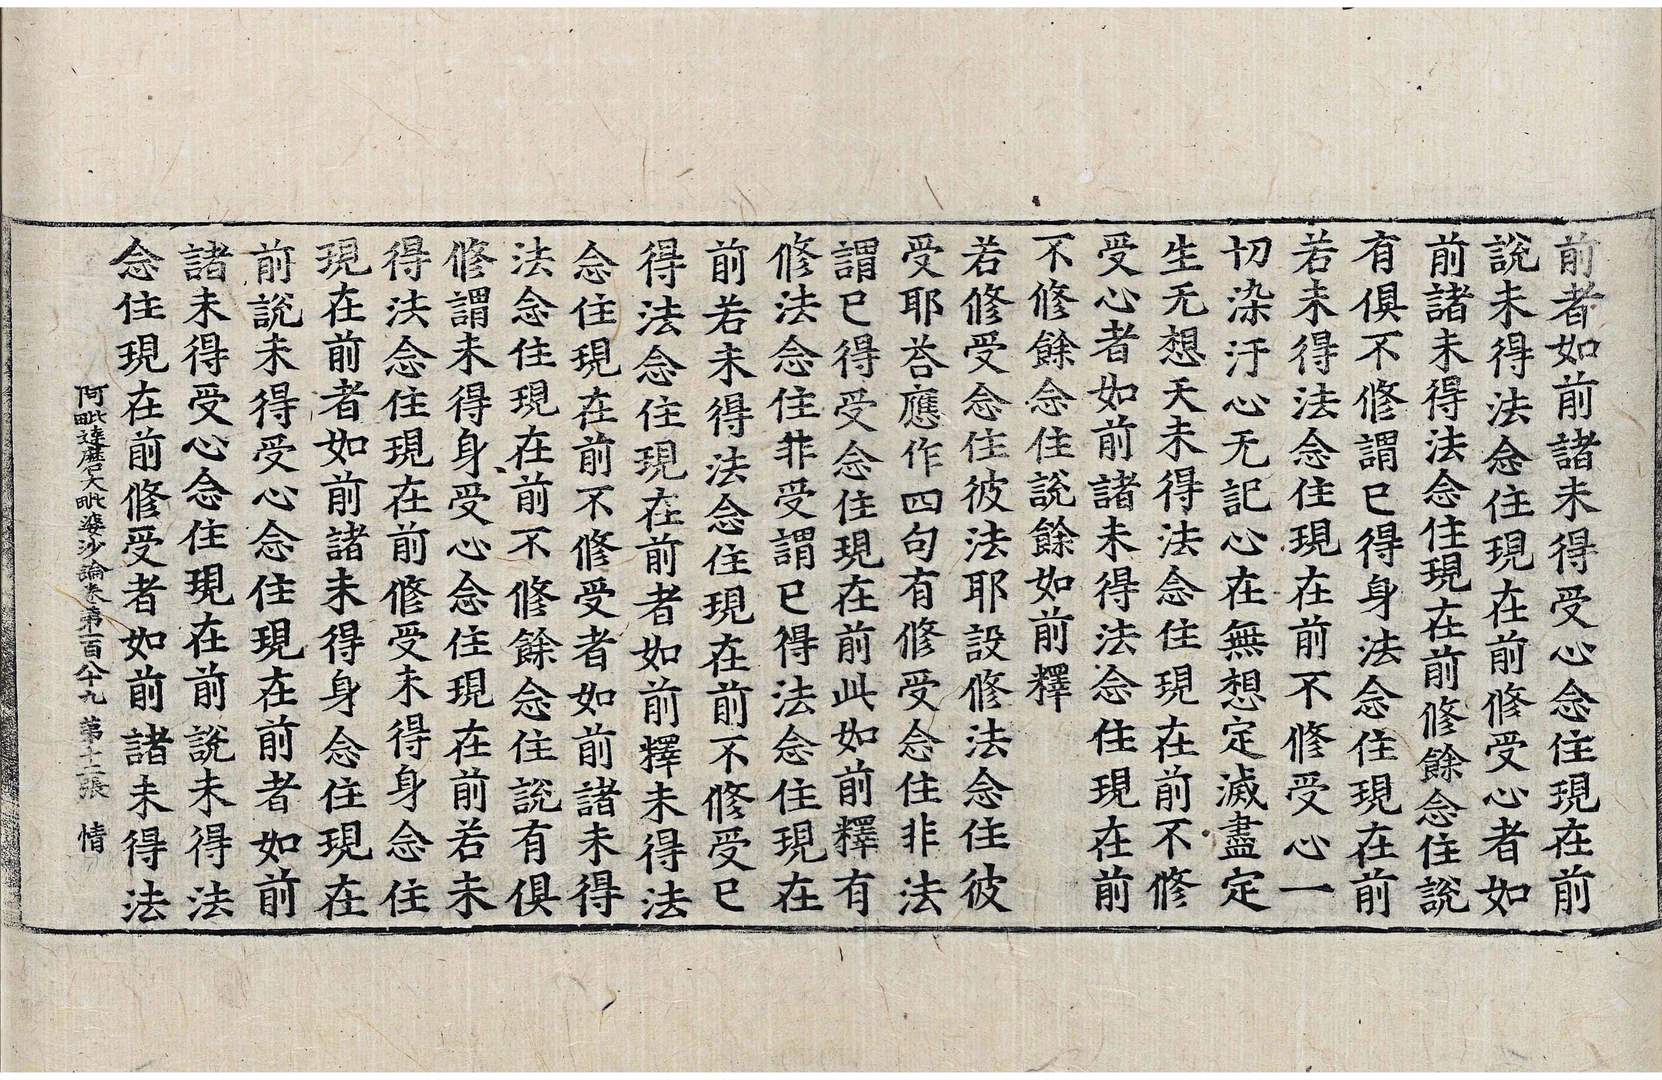 前者如前諸未得受心念住現在前
說未得法念住現在前修受心者如
前諸未得法念住現在前修餘念住說
有俱不修謂已得身法念住現在前
若未得法念住現在前不修受心一
切染汙心无記心在無想定滅盡定
生无想天未得法念住現在前不修
受心者如前諸未得法念住現在前
不修餘念住說餘如前釋
若修受念住彼法耶設修法念住彼
受耶荅應作四句有修受念住非法
謂已得受念住現在前此如前釋有
修法念住非受謂已得法念住現在
前若未得法念住現在前不修受已
得法念住現在前者如前釋未得法
念住現在前不修受者如前諸未得
法念住現在前不修餘念住說有俱
修謂未得身受心念住現在前若未
得法念住現在前修受未得身念住
現在前者如前諸未得身念住現在
前說未得受心念住現在前者如前
諸未得受心念住現在前說未得法
念住現在前修受者如前諸未得法
阿毗達磨大毗婆沙論卷第一百八十九 第十二張 情